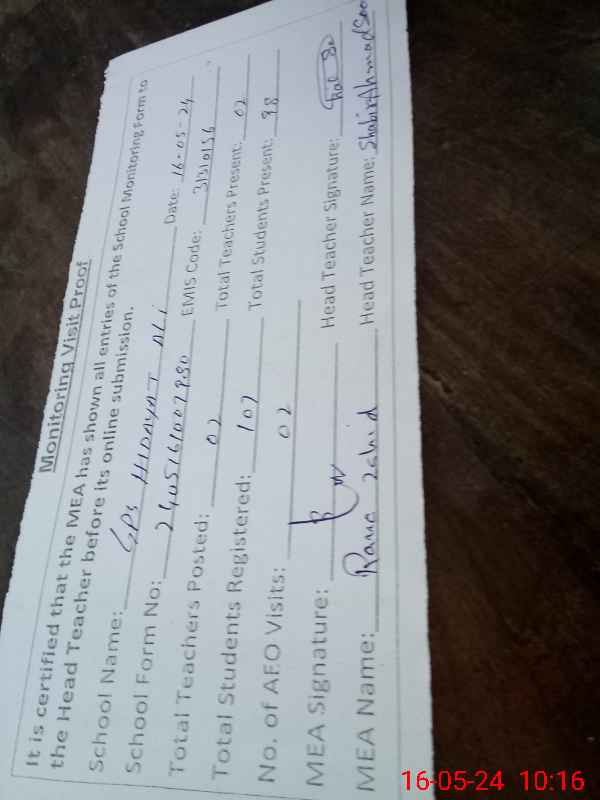 Monitoring Visit Proof
It is certified that the MEA has shown all entries of the School Monitoring Form to
the Head Teacher before its online submission.
School Name: GPS HIDAYAT ALI Date: 16-05-24
School Form No: EMIS Code: 31310156
Total Teachers Posted: 02 Total Teachers Present: 02
Total Students Registered: 107 Total Students Present: 98
No. of AEO Visits: 02
MEA Signature: Head Teacher Signature:
MEA Name: Rana Zahid Head Teacher Name: Shabir Ahmad
16-05-24 10:16